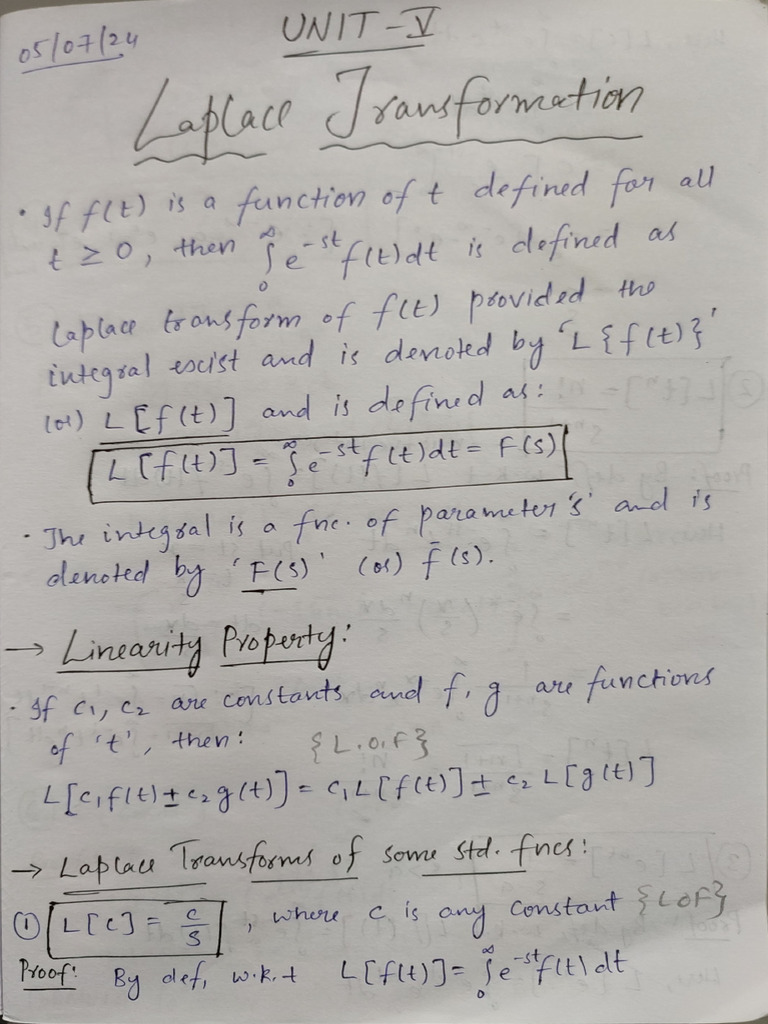 05/07/24
UNIT-V
Laplace Transformation
• If f(t) is a function of t defined for all
t ≥ 0, then ∫₀^∞ e^-st f(t)dt is defined as
Laplace transform of f(t) provided the
integral excist and is denoted by 'L{f(t)}'
(or) L[f(t)] and is defined as:
L[f(t)] = ∫₀^∞ e^-st f(t)dt = F(s)
• The integral is a fnc. of parameter 's' and is
denoted by 'F(s)' (or) f̄(s).
→ Linearity Property:
• If c₁, c₂ are constants and f, g are functions
of 't', then: {L.O.F}
L[c₁f(t) ± c₂g(t)] = c₁L[f(t)] ± c₂ L[g(t)]
→ Laplace Transforms of some std. fncs:
① L[c] = c/s , where c is any constant {LOF}
Proof: By def, w.k.t L[f(t)] = ∫₀^∞ e^-st f(t) dt